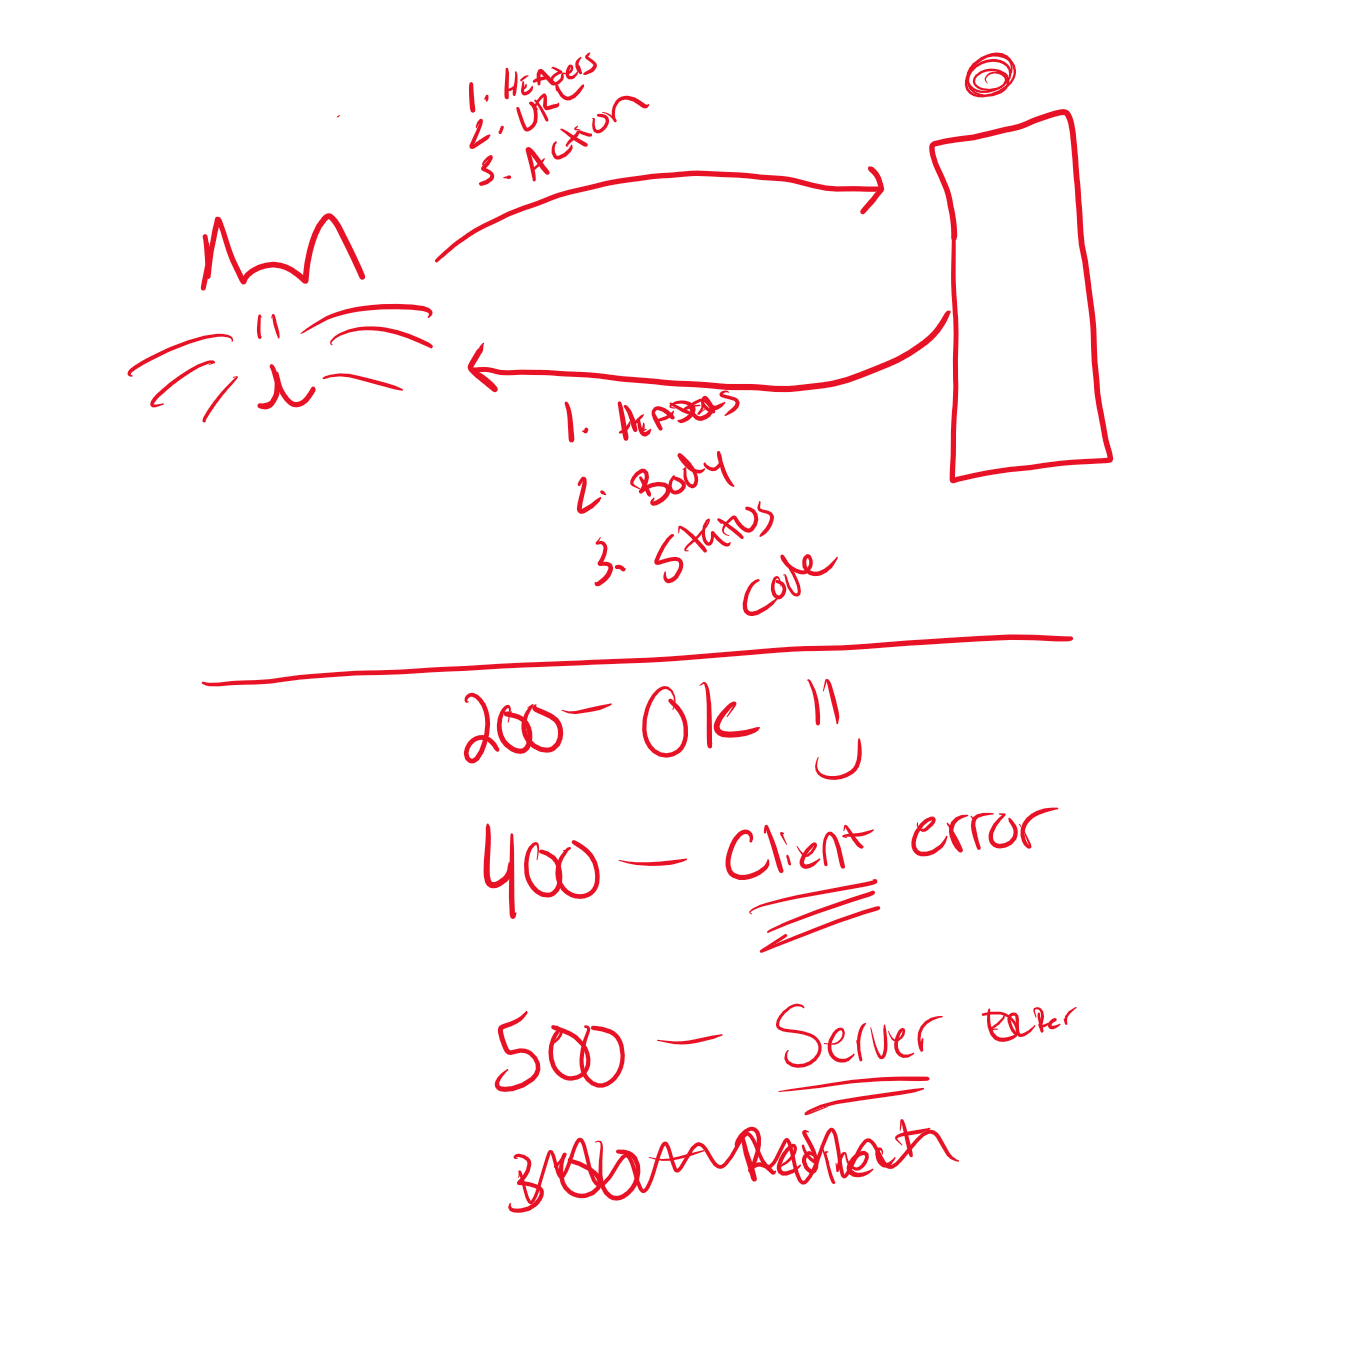 1. HEADers
2. URL
3. Action
1. HEADERS
2. Body
3. Status
Code
200 - Ok
400 - Client error
500 - Server
300 - Redirect